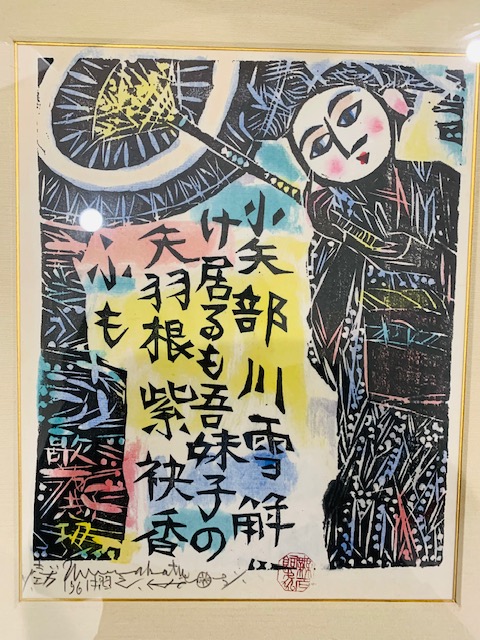 小矢部川雪解
け居るも吾妹子の
矢羽根紫袂香
小も
歌
志功
Munakata